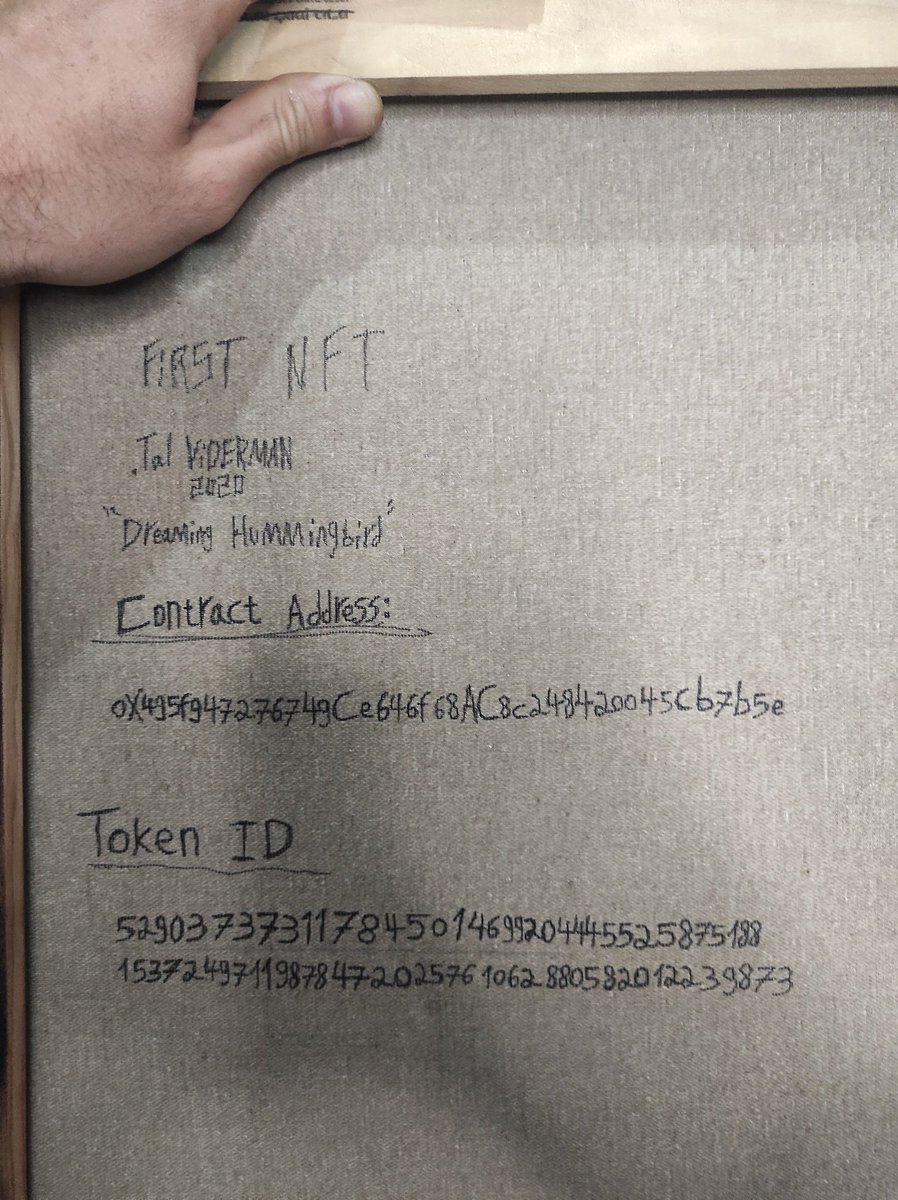 FiRST NFT
Tal ViDERMAN
2020
"Dreaming Hummingbird"
Contract Address:
0X495f947276749Ce646f68AC8c248420045Cb7b5e
Token ID
529037373117845014699204445525875188
15372497119878472025761062880582012239873